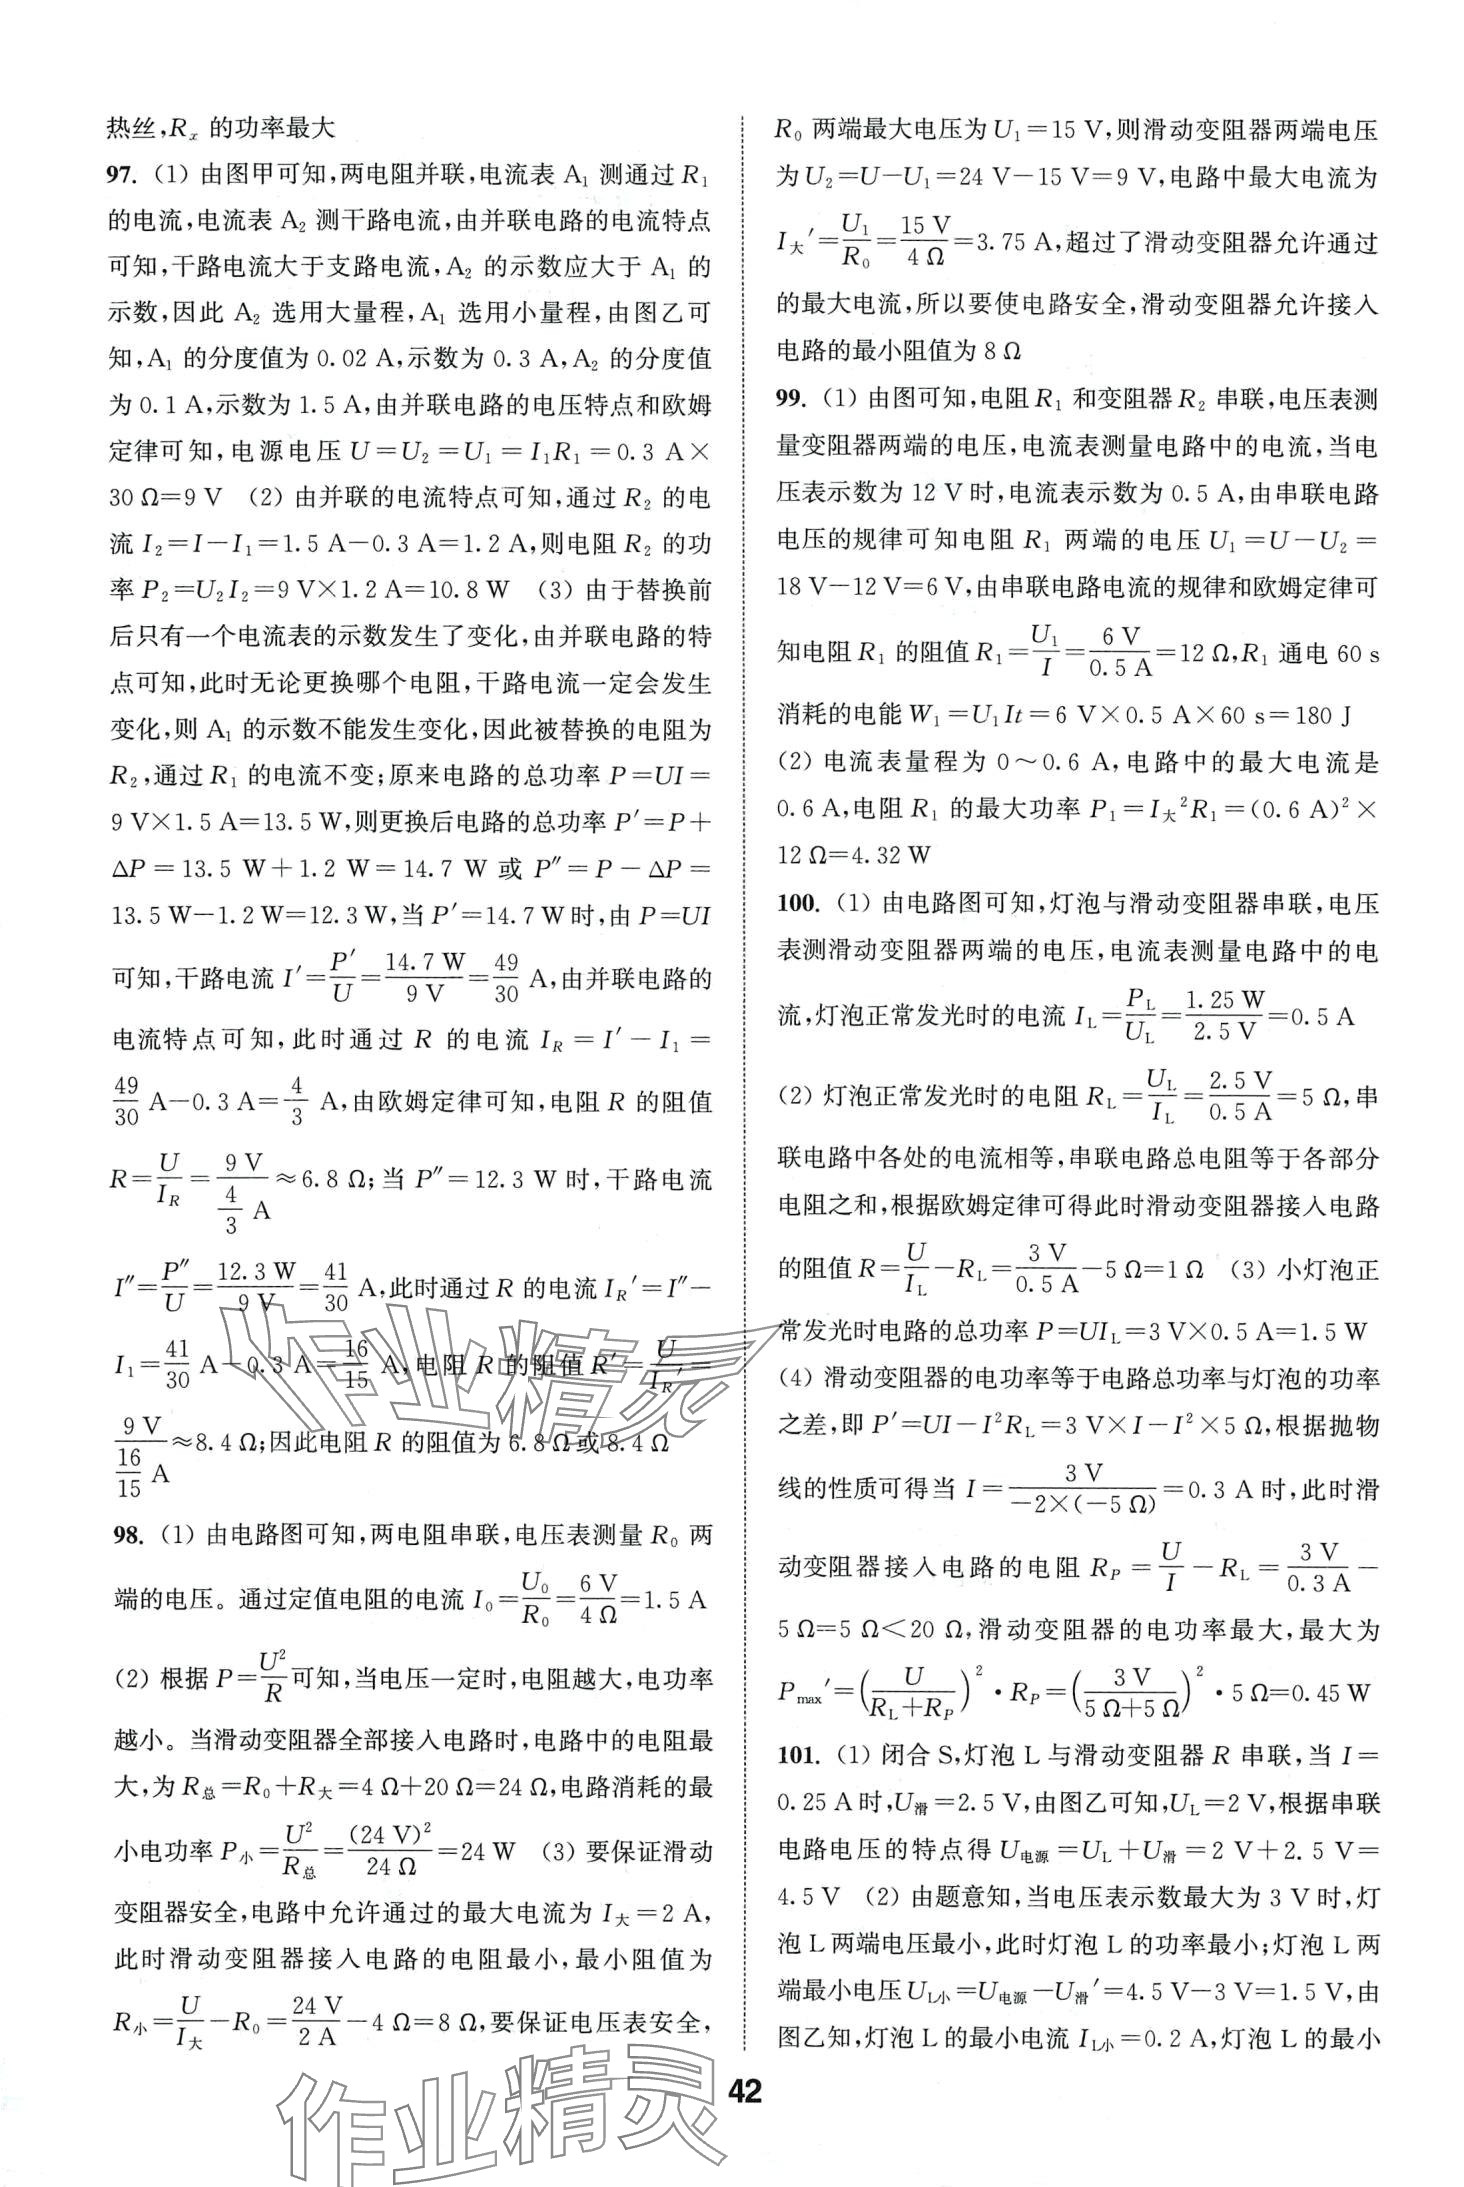 热丝,Rₓ 的功率最大
97. (1) 由图甲可知,两电阻并联,电流表 A₁ 测通过 R₁
的电流,电流表 A₂ 测干路电流,由并联电路的电流特点
可知,干路电流大于支路电流,A₂ 的示数应大于 A₁ 的
示数,因此 A₂ 选用大量程,A₁ 选用小量程,由图乙可
知,A₁ 的分度值为 0.02 A,示数为 0.3 A,A₂ 的分度值
为 0.1 A,示数为 1.5 A,由并联电路的电压特点和欧姆
定律可知,电源电压 U=U₂=U₁=I₁R₁=0.3 A×
30 Ω=9 V (2) 由并联的电流特点可知,通过 R₂ 的电
流 I₂=I-I₁=1.5 A-0.3 A=1.2 A,则电阻 R₂ 的功
率 P₂=U₂I₂=9 V×1.2 A=10.8 W (3) 由于替换前
后只有一个电流表的示数发生了变化,由并联电路的特
点可知,此时无论更换哪个电阻,干路电流一定会发生
变化,则 A₁ 的示数不能发生变化,因此被替换的电阻为
R₂,通过 R₁ 的电流不变;原来电路的总功率 P=UI=
9 V×1.5 A=13.5 W,则更换后电路的总功率 P′=P+
ΔP=13.5 W+1.2 W=14.7 W 或 P″=P-ΔP=
13.5 W-1.2 W=12.3 W,当 P′=14.7 W 时,由 P=UI
可知,干路电流 I′=P′/U=14.7 W/9 V=49/30 A,由并联电路的
电流特点可知,此时通过 R 的电流 I_R=I′-I₁=
49/30 A-0.3 A=4/3 A,由欧姆定律可知,电阻 R 的阻值
R=U/I_R=9 V/(4/3 A)≈6.8 Ω;当 P″=12.3 W 时,干路电流
I″=P″/U=12.3 W/9 V=41/30 A,此时通过 R 的电流 I_R′=I″-
I₁=41/30 A-0.3 A=16/15 A,电阻 R 的阻值 R′=U/I_R′=
9 V/(16/15 A)≈8.4 Ω;因此电阻 R 的阻值为 6.8 Ω 或 8.4 Ω
98. (1) 由电路图可知,两电阻串联,电压表测量 R₀ 两
端的电压。通过定值电阻的电流 I₀=U₀/R₀=6 V/4 Ω=1.5 A
(2) 根据 P=U²/R 可知,当电压一定时,电阻越大,电功率
越小。当滑动变阻器全部接入电路时,电路中的电阻最
大,为 R总=R₀+R大=4 Ω+20 Ω=24 Ω,电路消耗的最
小电功率 P小=U²/R总=(24 V)²/24 Ω=24 W (3) 要保证滑动
变阻器安全,电路中允许通过的最大电流为 I大=2 A,
此时滑动变阻器接入电路的电阻最小,最小阻值为
R小=U/I大-R₀=24 V/2 A-4 Ω=8 Ω,要保证电压表安全,
R₀ 两端最大电压为 U₁=15 V,则滑动变阻器两端电压
为 U₂=U-U₁=24 V-15 V=9 V,电路中最大电流为
I大′=U₁/R₀=15 V/4 Ω=3.75 A,超过了滑动变阻器允许通过
的最大电流,所以要使电路安全,滑动变阻器允许接入
电路的最小阻值为 8 Ω
99. (1) 由图可知,电阻 R₁ 和变阻器 R₂ 串联,电压表测
量变阻器两端的电压,电流表测量电路中的电流,当电
压表示数为 12 V 时,电流表示数为 0.5 A,由串联电路
电压的规律可知电阻 R₁ 两端的电压 U₁=U-U₂=
18 V-12 V=6 V,由串联电路电流的规律和欧姆定律可
知电阻 R₁ 的阻值 R₁=U₁/I=6 V/0.5 A=12 Ω,R₁ 通电 60 s
消耗的电能 W₁=U₁It=6 V×0.5 A×60 s=180 J
(2) 电流表量程为 0～0.6 A,电路中的最大电流是
0.6 A,电阻 R₁ 的最大功率 P₁=I大²R₁=(0.6 A)²×
12 Ω=4.32 W
100. (1) 由电路图可知,灯泡与滑动变阻器串联,电压
表测滑动变阻器两端的电压,电流表测量电路中的电
流,灯泡正常发光时的电流 I_L=P_L/U_L=1.25 W/2.5 V=0.5 A
(2) 灯泡正常发光时的电阻 R_L=U_L/I_L=2.5 V/0.5 A=5 Ω,串
联电路中各处的电流相等,串联电路总电阻等于各部分
电阻之和,根据欧姆定律可得此时滑动变阻器接入电路
的阻值 R=U/I_L-R_L=3 V/0.5 A-5 Ω=1 Ω (3) 小灯泡正
常发光时电路的总功率 P=UI_L=3 V×0.5 A=1.5 W
(4) 滑动变阻器的电功率等于电路总功率与灯泡的功率
之差,即 P′=UI-I²R_L=3 V×I-I²×5 Ω,根据抛物
线的性质可得当 I=3 V/(-2×(-5 Ω))=0.3 A 时,此时滑
动变阻器接入电路的电阻 R_P=U/I-R_L=3 V/0.3 A-
5 Ω=5 Ω<20 Ω,滑动变阻器的电功率最大,最大为
P_max′=(U/(R_L+R_P))²·R_P=(3 V/(5 Ω+5 Ω))²·5 Ω=0.45 W
101. (1) 闭合 S,灯泡 L 与滑动变阻器 R 串联,当 I=
0.25 A 时,U滑=2.5 V,由图乙可知,U_L=2 V,根据串联
电路电压的特点得 U电源=U_L+U滑=2 V+2.5 V=
4.5 V (2) 由题意知,当电压表示数最大为 3 V 时,灯
泡 L 两端电压最小,此时灯泡 L 的功率最小;灯泡 L 两
端最小电压 U_L小=U电源-U滑′=4.5 V-3 V=1.5 V,由
图乙知,灯泡 L 的最小电流 I_L小=0.2 A,灯泡 L 的最小
42
作业精灵
作业精灵